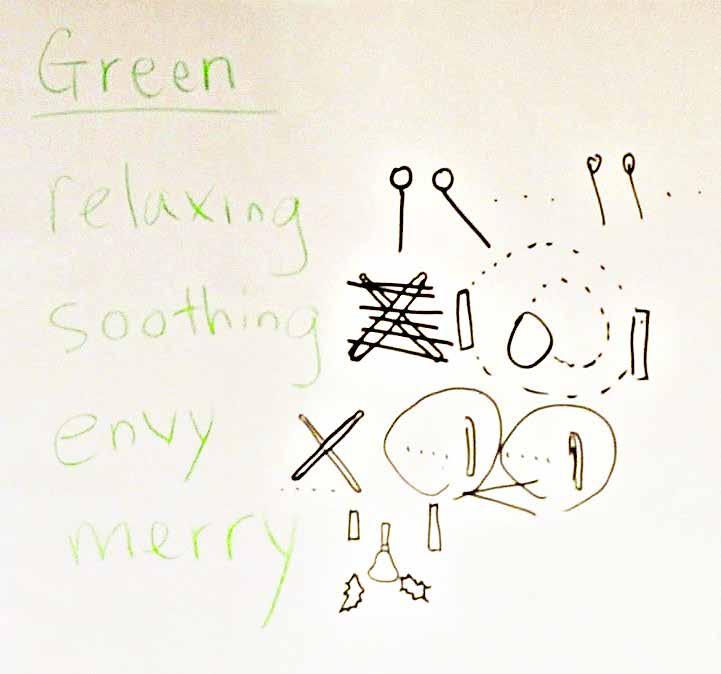 Green
relaxing
soothing
envy
merry